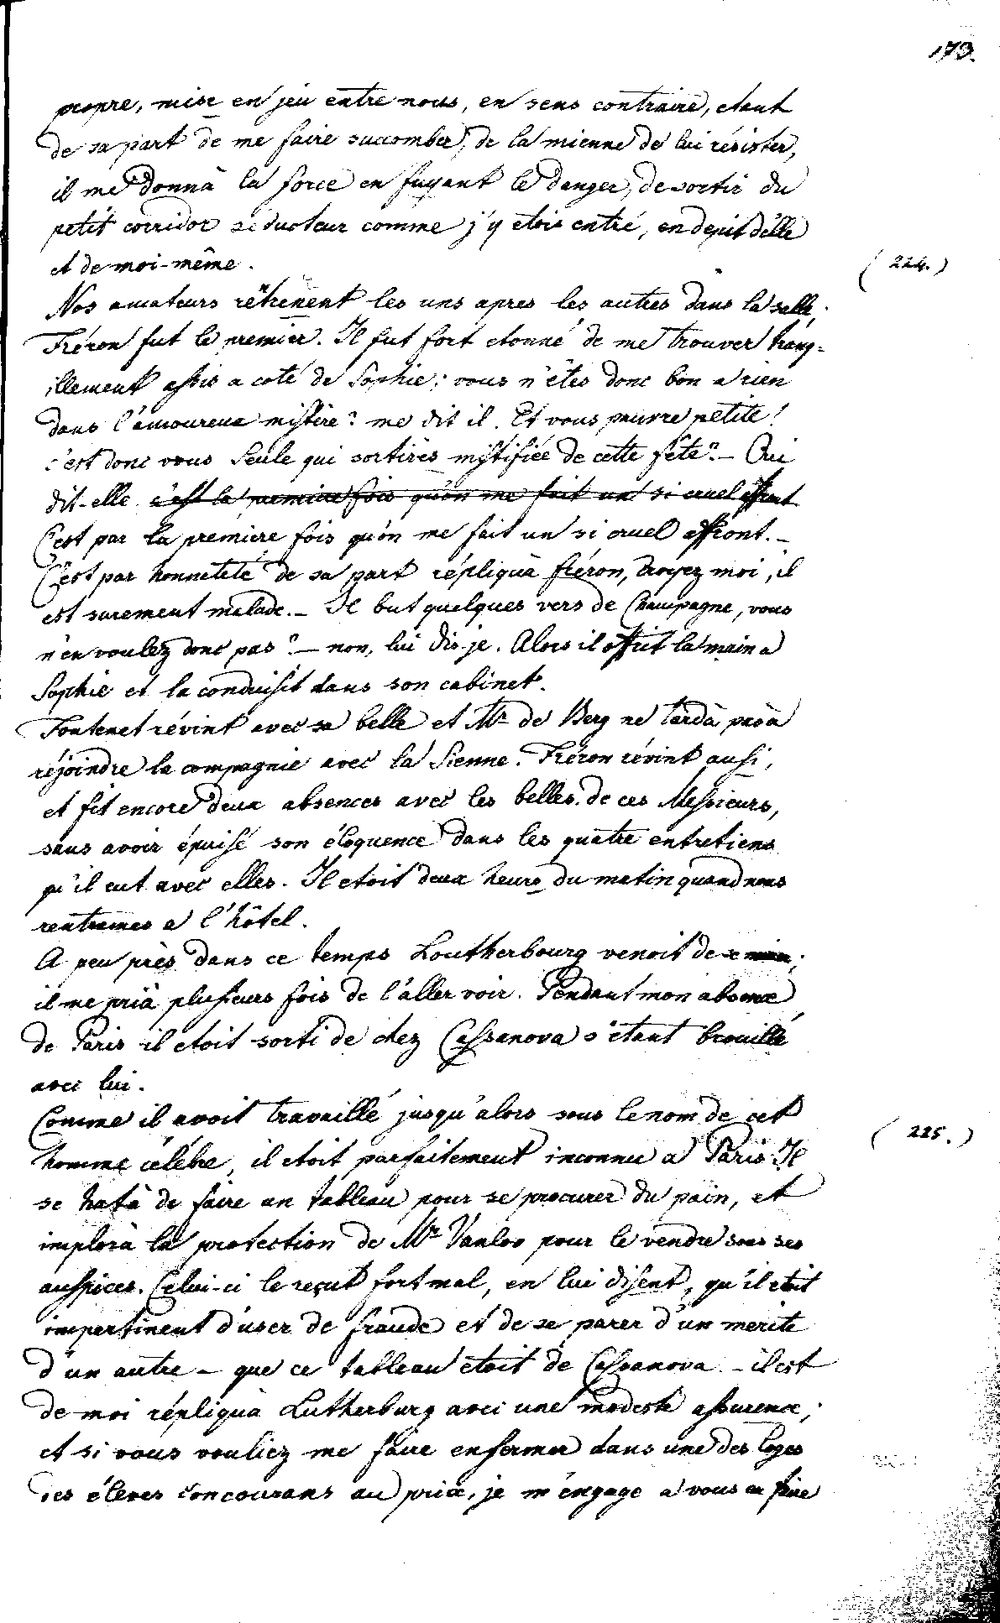 173.
propre, mise en jeu entre nous, en sens contraire, etant
de sa part de me faire succomber, de la mienne de lui résister,
il me donnà la force en fuyant le danger, de sortir du
petit corridor séducteur comme j'y etois entré, en depit d'elle
et de moi-même.
(224.)
Nos amateurs rétrerent les uns apres les autres dans la salle,
Fréron fut le premier. Il fut fort etonné de me trouver tranq-
illement assis a coté de Sophie; vous n'étes donc bon a rien
dans l'amoureux mistère? me dit il. Et vous pauvre petite!
c'est donc vous seule qui sortirés mistifiée de cette fête? — Oui
dit-elle c'est la premiere fois qu'on me fait un si cruel affront
C'est par la première fois qu'on me fait un si cruel affront. —
C'est par honnetété de sa part répliquà fréron, croyez moi, il
est surement malade. — Il but quelques vers de Champagne, vous
n'en voulez donc pas? — non, lui dis-je. Alors il offrit la main a
Sophie et la conduisit dans son cabinet.
Fontenet révint avec sa belle et Mr. de Berg ne tardà pas a
réjoindre la compagnie avec la sienne. Fréron révint aussi,
et fit encore deux absences avec les belles de ces Messieurs,
sans avoir épuisé son éloquence dans les quatre entretiens
qu'il eut avec elles. Il etoit deux heures du matin quand nous
rentrames a l'hôtel.
A peu près dans ce temps Loutherbourg venoit de
il me prià plusieurs fois de l'aller voir. Pendant mon absence
de Paris il etoit sorti de chez Cassanova s'étant brouillé
avec lui.
(225.)
Comme il avoit travaillé jusqu'alors sous le nom de cet
homme célébre, il etoit parfaitement inconnu a Paris. Il
se hatà de faire un tableau pour se procurer du pain, et
implorà la protection de Mr. Vanloo pour le vendre sous ses
auspices. Celui-ci le reçut fort mal, en lui disent, qu'il etoit
impertinent d'user de fraude et de se parer d'un merite
d'un autre — que ce tableau étoit de Cassanova — il est
de moi répliquà Lutherburg avec une modeste assurence;
et si vous vouliez me faire enfermer dans une des loges
des éleves concourans au prix, je m'engage a vous en faire